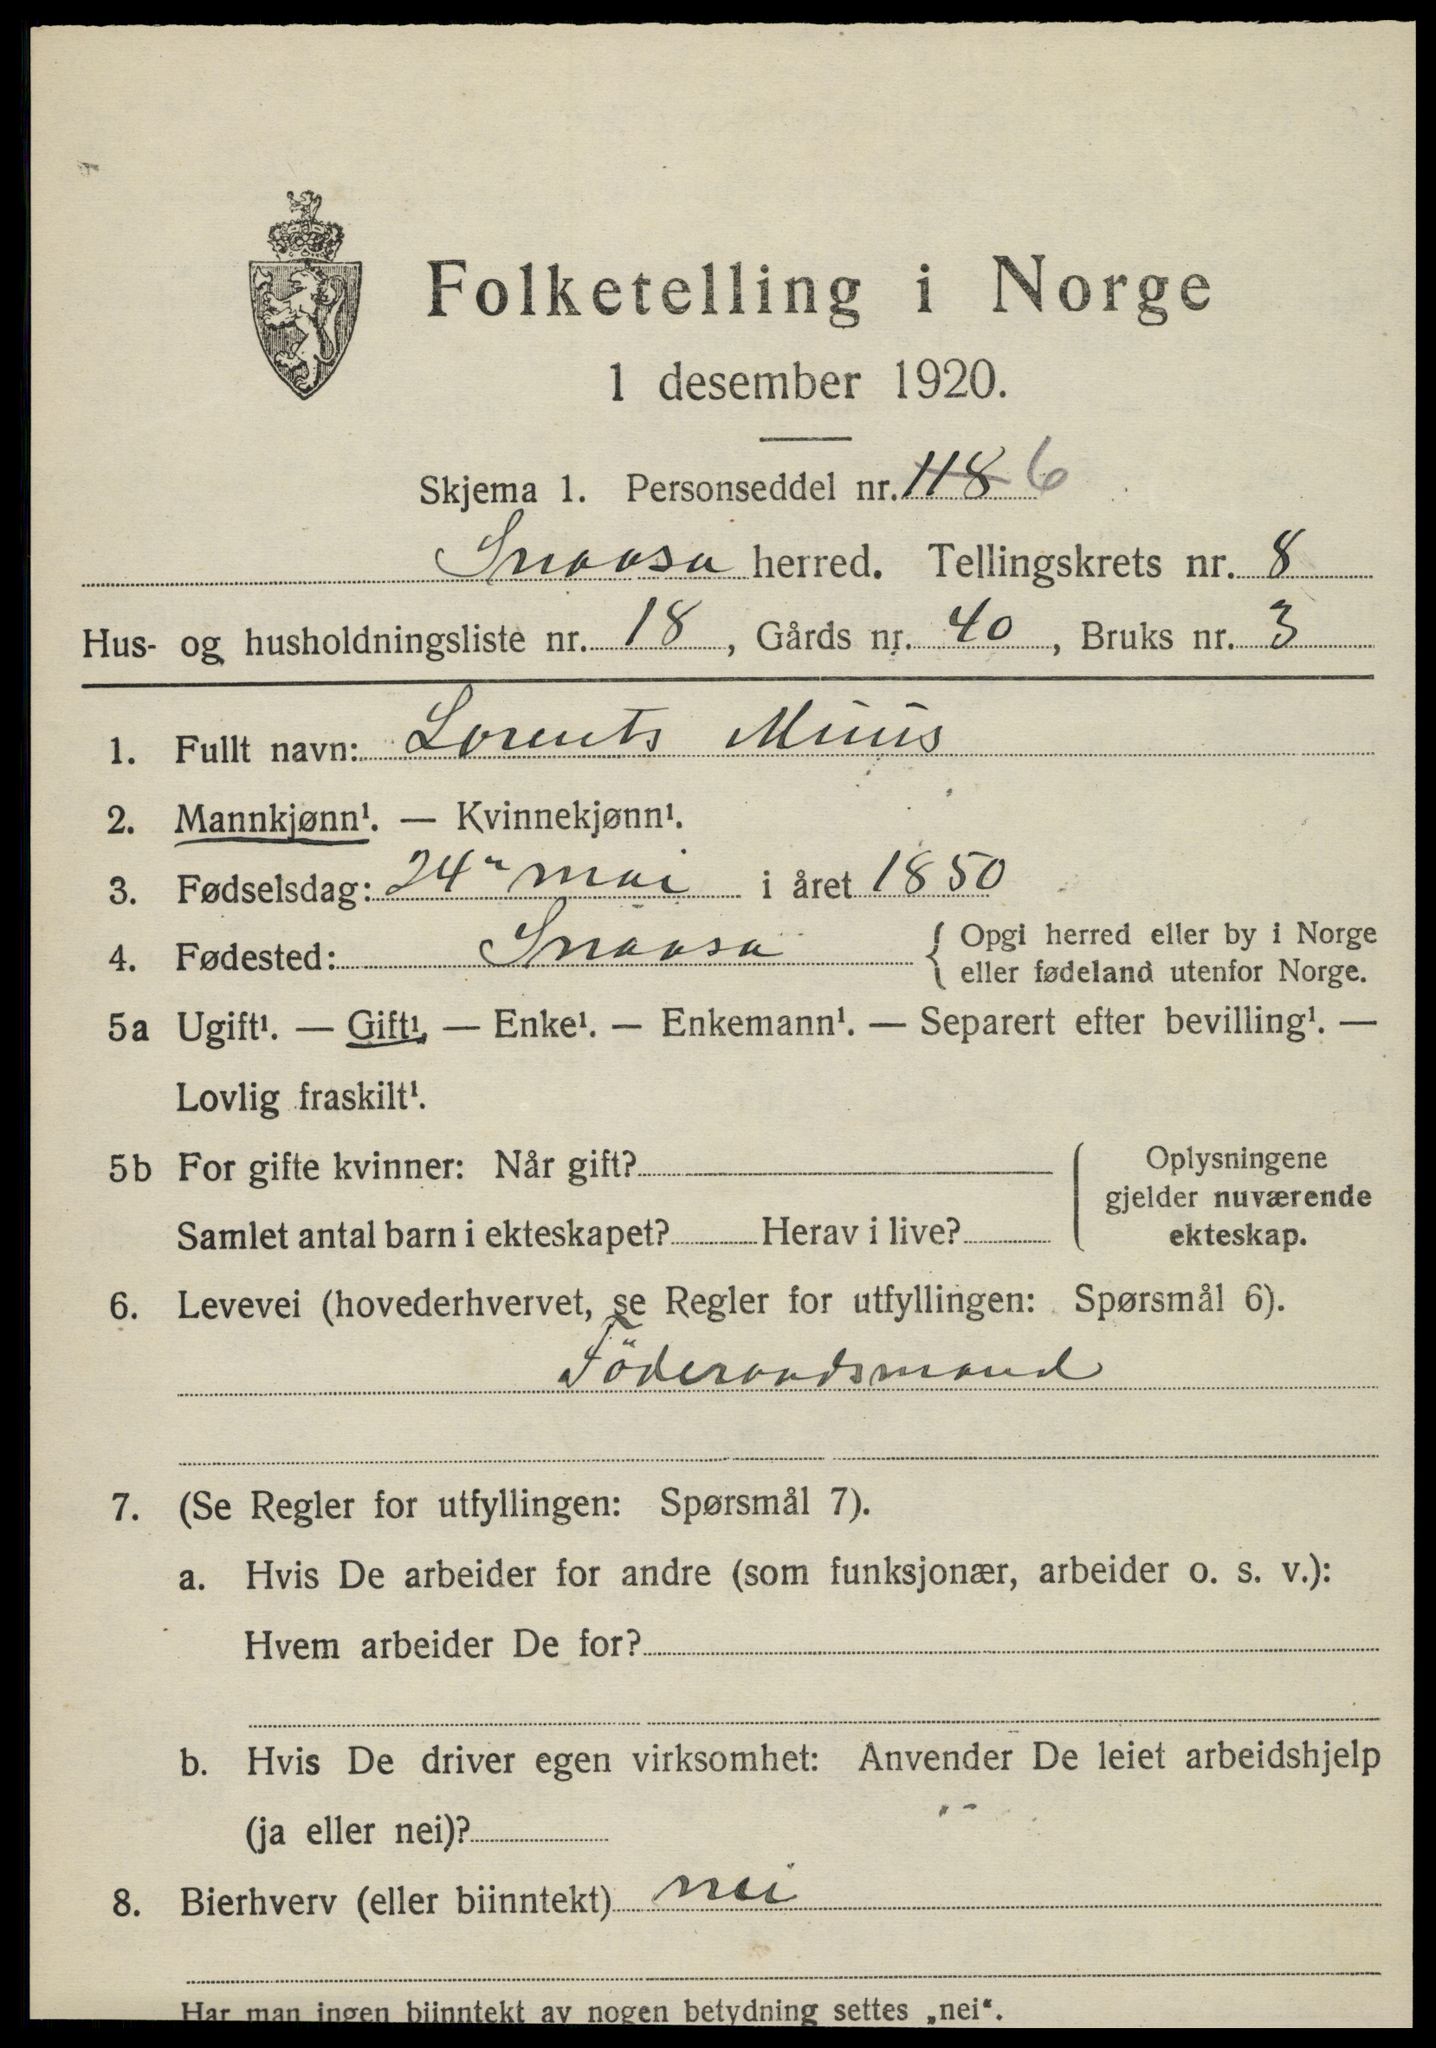 Folketelling i Norge
1 desember 1920.
Skjema 1. Personseddel nr. 118 6
Snaasa herred. Tellingskrets nr. 8
Hus- og husholdningsliste nr. 18, Gårds nr. 40, Bruks nr. 3
1. Fullt navn: Lorents Muus
2. Mannkjønn¹. — Kvinnekjønn¹.
3. Fødselsdag: 24" mai i året 1850
4. Fødested: Snaasa { Opgi herred eller by i Norge
eller fødeland utenfor Norge.
5a Ugift¹. — Gift¹, — Enke¹. — Enkemann¹. — Separert efter bevilling¹. —
Lovlig fraskilt¹.
5b For gifte kvinner: Når gift?
Samlet antal barn i ekteskapet? Herav i live?
Oplysningene
gjelder nuværende
ekteskap.
6. Levevei (hovederhvervet, se Regler for utfyllingen: Spørsmål 6).
Föderaadsmand
7. (Se Regler for utfyllingen: Spørsmål 7).
a. Hvis De arbeider for andre (som funksjonær, arbeider o. s. v.):
Hvem arbeider De for?
b. Hvis De driver egen virksomhet: Anvender De leiet arbeidshjelp
(ja eller nei)?
8. Bierhverv (eller biinntekt) nei
Har man ingen biinntekt av nogen betydning settes „nei“.